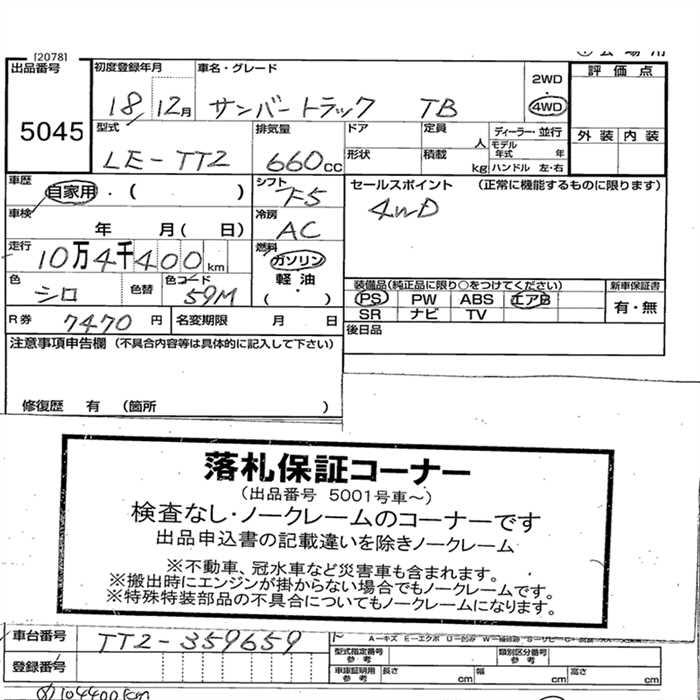 [2078]
出品番号 5045
初度登録年月 18/12月
車名・グレード サンバートラック TB
2WD 4WD
評価点
外装 内装
型式 LE-TT2
排気量 660cc
ドア 定員 人
形状 積載 kg
ディーラー・並行
モデル年式 年
ハンドル 左・右
車歴 自家用・( )
シフト F5
セールスポイント (正常に機能するものに限ります)
4WD
車検 年 月( 日)
冷房 AC
走行 10万4千400km
燃料 ガソリン・軽油・( )
色 シロ 色替 色コード 59M
装備品(純正品に限り○をつけてください) 新車保証書
PS PW ABS エアB 有・無
SR ナビ TV
R券 7470円 名変期限 月 日
後日品
注意事項申告欄 (不具合内容等は具体的に記入して下さい)
修復歴 有 (箇所 )
落札保証コーナー
(出品番号 5001号車~)
検査なし・ノークレームのコーナーです
出品申込書の記載違いを除きノークレーム
※不動車、冠水車など災害車も含まれます。
※搬出時にエンジンが掛からない場合でもノークレームです。
※特殊特装部品の不具合についてもノークレームになります。
車台番号 TT2-359659
A-キズ E-エクボ U-凹み
登録番号
型式指定番号 参考 類別区分番号 参考
車庫証明用 参考 長さ cm 幅 cm 高さ cm
104400km